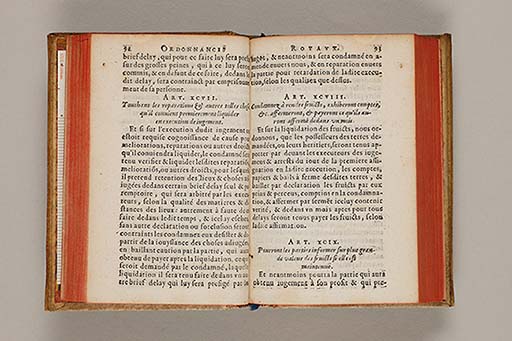 92 ORDONNANCES
brief delay, qui pour ce faire luy sera prefix
sur des grosses peines, qui à ce luy seront
commis, & en defaut de ce faire, dedans le
dit delay, sera contrainct par emprisonne-
ment de sa personne.
ART. XCVII.
Touchans les reparations & autres telles choses
qu'il convient premierement liquider
en execution de jugement.
Et si sur l'execution dudit jugement
estoit requise cognoissance de cause pour
meliorations, reparations ou autres droits
qu'il conviendra liquider, le condamné sera
tenu verifier & liquider lesdites reparations
meliorations, ou autres droicts, pour lesquels
il pretend retention des lieux & choses ad-
jugées dedans certain brief delay seul &
remptoire, qui sera arbitré par les execu-
teurs, selon la qualité des matieres & di-
stances des lieux: autrement à faute de ce
faire dedans ledit temps, & icel uy escheu
sans autre declaration ou forclusion seront
contraints les condamnez eux desister & de-
partir de la jouyssance des choses adjugées
en baillant caution par la partie, qui aura
obtenu de payer apres la liquidation, ce qui
seroit demandé par le condamné, laquelle
liquidation il sera tenu faire dedans un au-
tre brief delay qui luy sera prefigé par les
ROYAUX. 93
juges, & neantmoins sera condamné en a-
mende envers nous, & en reparation envers
la partie pour retardation de ladite execu-
tion, selon les qualites que dessus.
ART. XCVIII.
Condamnez à rendre fruicts, exhiberont comptes,
&c. affermeront, & payeront ce qu'ils au-
ront affermé dedans un mois.
Et sur la liquidation des fruicts, nous or-
donnons, que les possesseurs des terres de-
mandées, ou leurs heritiers, seront tenus ap-
porter par devant les executeurs des juge-
ment & arrests du iour de la premiere assi-
gnation en ladite execution, les comptes,
papiers & bails à ferme desdites terres, &
bailler par declaration les fruicts par eux
prins & perceus, comprins en la condamna-
tion, & affermer par serment iceluy contenir
verité, & dedans un mois apres pour tout
delays seront tenus payer les fruicts, selon
ladite affirmation.
ART. XCIX.
Pourront les parties informer sur plus gran-
de valeur des fruicts si elle est
maintenuë.
Et neantmoins pourra la partie qui aura
obtenu jugement à son profit & qui pre-